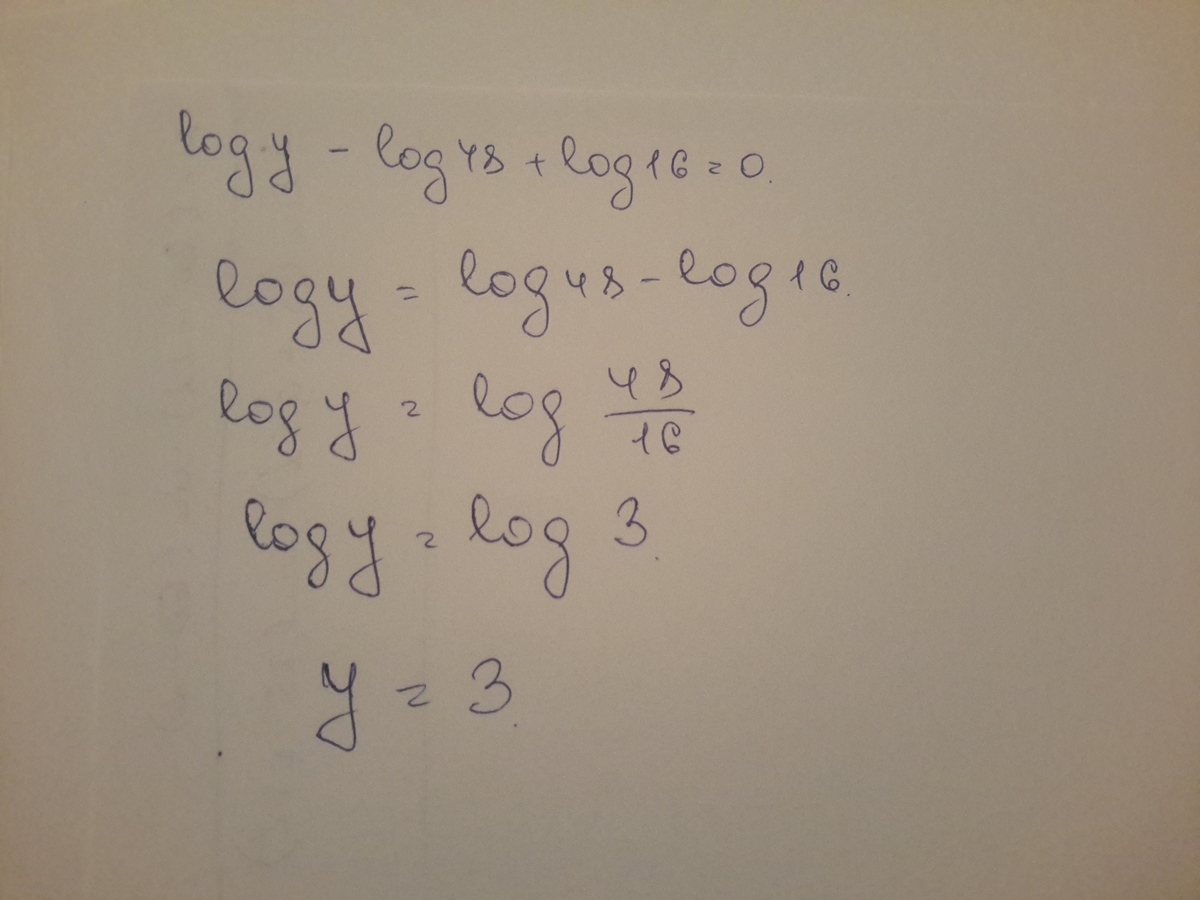 log y - log 48 + log 16 = 0.
log y = log 48 - log 16.
log y = log 48/16
log y = log 3.
y = 3.